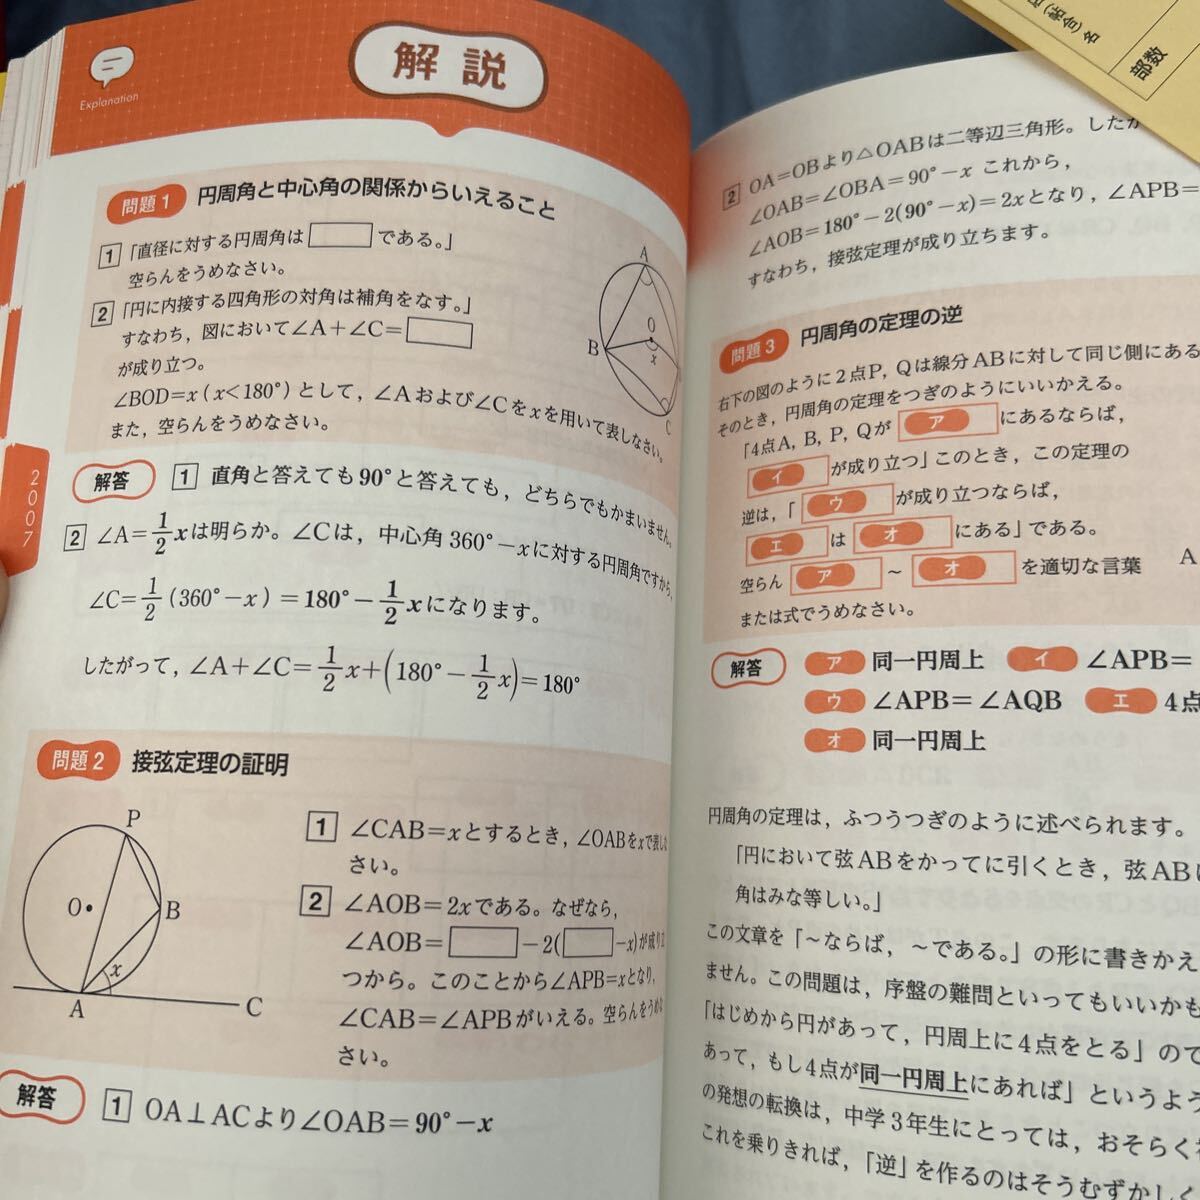 Explanation
解説
問題1 円周角と中心角の関係からいえること
1 「直径に対する円周角は□である。」
空らんをうめなさい。
2 「円に内接する四角形の対角は補角をなす。」
すなわち，図において∠A＋∠C＝□
が成り立つ。
∠BOD＝x（x＜180°）として，∠Aおよび∠Cをxを用いて表しなさい。
また，空らんをうめなさい。
A
O
x
B
C
解答 1 直角と答えても90°と答えても，どちらでもかまいません。
2 ∠A＝1/2xは明らか。∠Cは，中心角360°－xに対する円周角ですから，
∠C＝1/2（360°－x）＝180°－1/2xになります。
したがって，∠A＋∠C＝1/2x＋(180°－1/2x)＝180°
2007
問題2 接弦定理の証明
P
O
B
x
A
C
1 ∠CAB＝xとするとき，∠OABをxで表しな
さい。
2 ∠AOB＝2xである。なぜなら，
∠AOB＝□－2(□－x)が成り立
つから。このことから∠APB＝xとなり，
∠CAB＝∠APBがいえる。空らんをうめな
さい。
解答 1 OA⊥ACより∠OAB＝90°－x
部数
2 OA＝OBより△OABは二等辺三角形。したが
∠OAB＝∠OBA＝90°－x これから，
∠AOB＝180°－2(90°－x)＝2xとなり，∠APB＝
すなわち，接弦定理が成り立ちます。
問題3 円周角の定理の逆
右下の図のように2点P，Qは線分ABに対して同じ側にある
そのとき，円周角の定理をつぎのようにいいかえる。
「4点A，B，P，Qが ア にあるならば，
イ が成り立つ」このとき，この定理の
逆は，「 ウ が成り立つならば，
エ は オ にある」である。
空らん ア ～ オ を適切な言葉
または式でうめなさい。
A
解答 ア 同一円周上 イ ∠APB＝
ウ ∠APB＝∠AQB エ 4点
オ 同一円周上
円周角の定理は，ふつうつぎのように述べられます。
「円において弦ABをかってに引くとき，弦ABに
角はみな等しい。」
この文章を「～ならば，～である。」の形に書きかえ
ません。この問題は，序盤の難問といってもいいかも
「はじめから円があって，円周上に4点をとる」ので
あって，もし4点が同一円周上にあれば」というよう
の発想の転換は，中学3年生にとっては，おそらく
これを乗りきれば，「逆」を作るのはそうむずかしく